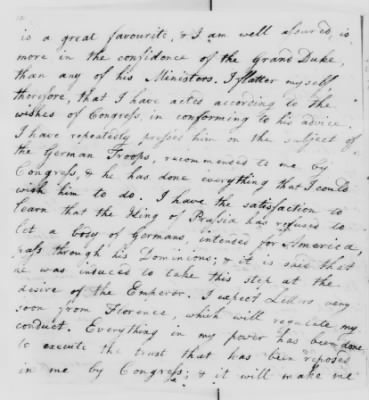 is a great favourite, & I am well assured, is
more in the confidence of the Grand Duke,
than any of his Ministers. I flatter myself
therefore, that I have acted according to the
wishes of Congress, in conforming to his advice.
I have repeatedly pressed him on the subject of
the German Troops, recommended to me by
Congress, & he has done everything that I could
wish him to do. I have the satisfaction to
learn that the King of Prussia has refused to
let a body of Germans, intended for America,
pass through his Dominions; & it is said that
he was induced to take this step at the
desire of the Emperor. I expect Letters very
soon from Florence, which will regulate my
conduct. Everything in my power has been done
to execute the trust that was been reposed
in me by Congress; & it will make me